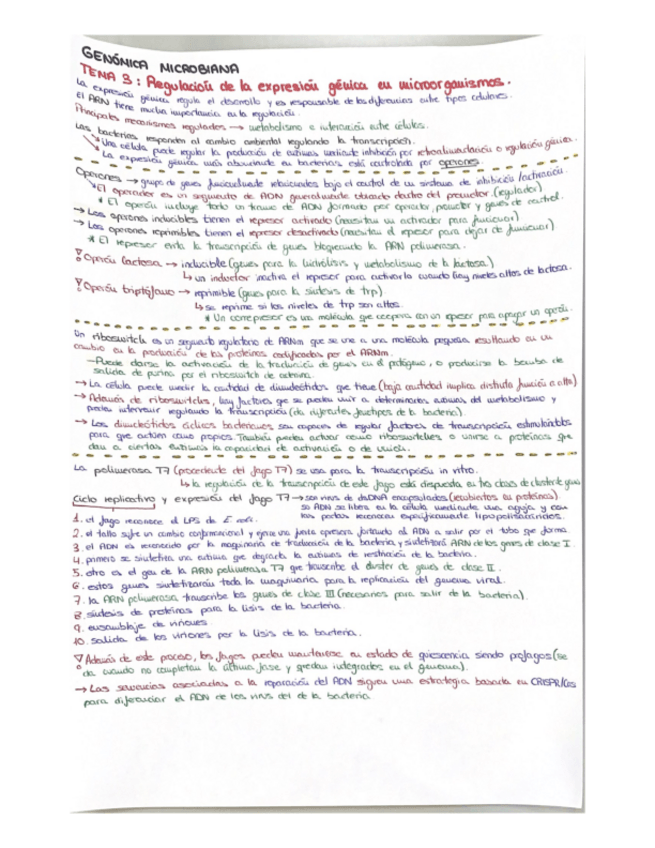 GENÓMICA MICROBIANA
TEMA 3: Regulación de la expresión génica en microorganismos.
La expresión génica regula el desarrollo y es responsable de las diferencias entre tipos celulares.
El ARN tiene mucha importancia en la regulación.
Principales mecanismos regulados → metabolismo e interacción entre células.
Las bacterias responden al cambio ambiental regulando la transcripción.
↘ Una célula puede regular la producción de enzimas mediante inhibición por retroalimentación o regulación génica.
↘ La expresión génica más abundante en bacterias está controlada por operones.
Operones → grupo de genes funcionalmente relacionados bajo el control de un sistema de inhibición/activación.
↘ El operador es un segmento de ADN generalmente situado dentro del promotor. (regulador)
* El operón incluye todo un tramo de ADN formado por operador, promotor y genes de control.
→ Los operones inducibles tienen el represor activado (necesitan un activador para funcionar)
→ Los operones reprimibles tienen el represor desactivado (necesitan el represor para dejar de funcionar)
* El represor evita la transcripción de genes bloqueando la ARN polimerasa.
Operón lactosa → inducible (genes para la hidrólisis y metabolismo de la lactosa)
↳ un inductor inactiva el represor para activarlo cuando hay niveles altos de lactosa.
Operón triptófano → reprimible (genes para la síntesis de trp).
↳ se reprime si los niveles de trp son altos.
* Un correpresor es una molécula que coopera con un represor para apagar un operón.
Un riboswitch es un segmento regulatorio de ARNm que se une a una molécula pequeña resultando en un
cambio en la producción de las proteínas codificadas por el ARNm.
→ Puede darse la activación de la traducción de genes en el patógeno, o producirse la bomba de
salida de purina por el riboswitch de adenina.
→ La célula puede medir la cantidad de dinucleótidos que tiene (baja cantidad implica distinta función a alta)
→ Además de riboswitches, hay factores que se pueden unir a determinadas enzimas del metabolismo y
pueden intervenir regulando la transcripción (da diferentes fenotipos de la bacteria).
→ Los dinucleótidos cíclicos bacterianos son capaces de regular factores de transcripción estimulándolos
para que actúen como propios. También pueden actuar como riboswitches o unirse a proteínas que
dan a ciertas enzimas la capacidad de activación o de unión.
La polimerasa T7 (procedente del fago T7) se usa para la transcripción in vitro.
↳ la regulación de la transcripción de este fago está dispuesta en tres clases de cluster de genes
Ciclo replicativo y expresión del fago T7 → son virus de dsDNA encapsulados (recubiertos en proteínas)
su ADN se libera en la célula mediante una aguja y con
las patas reconocen específicamente lipopolisacáridos.
1. el fago reconoce el LPS de E. coli.
2. el tallo sufre un cambio conformacional y ejerce una fuerte opresora forzando el ADN a salir por el tubo que forma
3. el ADN es reconocido por la maquinaria de traducción de la bacteria, y sintetizará ARN de los genes de clase I.
4. primero se sintetiza una enzima que degrada la enzimas de restricción de la bacteria.
5. otro es el gen de la ARN polimerasa T7 que transcribe el cluster de genes de clase II.
6. estos genes sintetizarán toda la maquinaria para la replicación del genoma viral.
7. la ARN polimerasa transcribe los genes de clase III (necesarios para salir de la bacteria).
8. síntesis de proteínas para la lisis de la bacteria.
9. ensamblaje de viriones.
10. salida de los viriones por la lisis de la bacteria.
Además de este proceso, los fagos pueden mantenerse en estado de quiescencia siendo profagos (se
da cuando no completan la última fase y quedan integrados en el genoma).
→ Las secuencias asociadas a la reparación del ADN siguen una estrategia basada en CRISPR/Cas
para diferenciar el ADN de los virus del de la bacteria